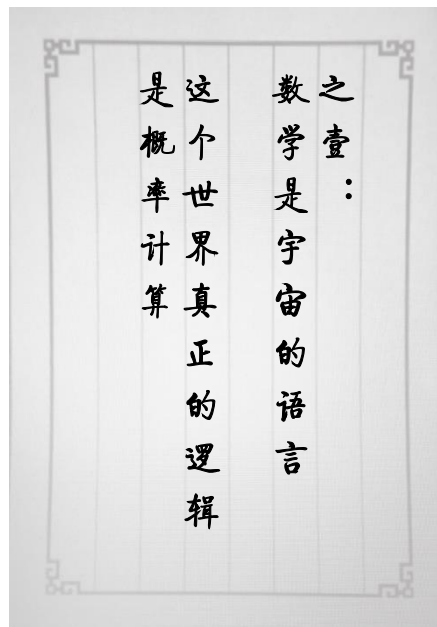 之壹：
数学是宇宙的语言
这个世界真正的逻辑
是概率计算